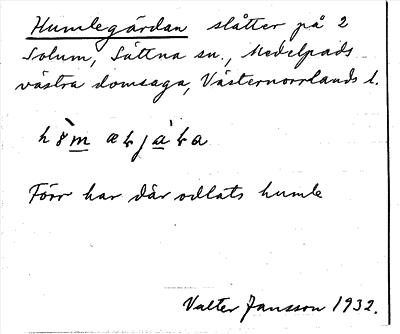 Humlegärdan slåtter på 2
Solum, Sättna sn., Medelpads
västra domsaga, Västernorrlands l.
Förr har där odlats humle
Valter Jansson 1932.